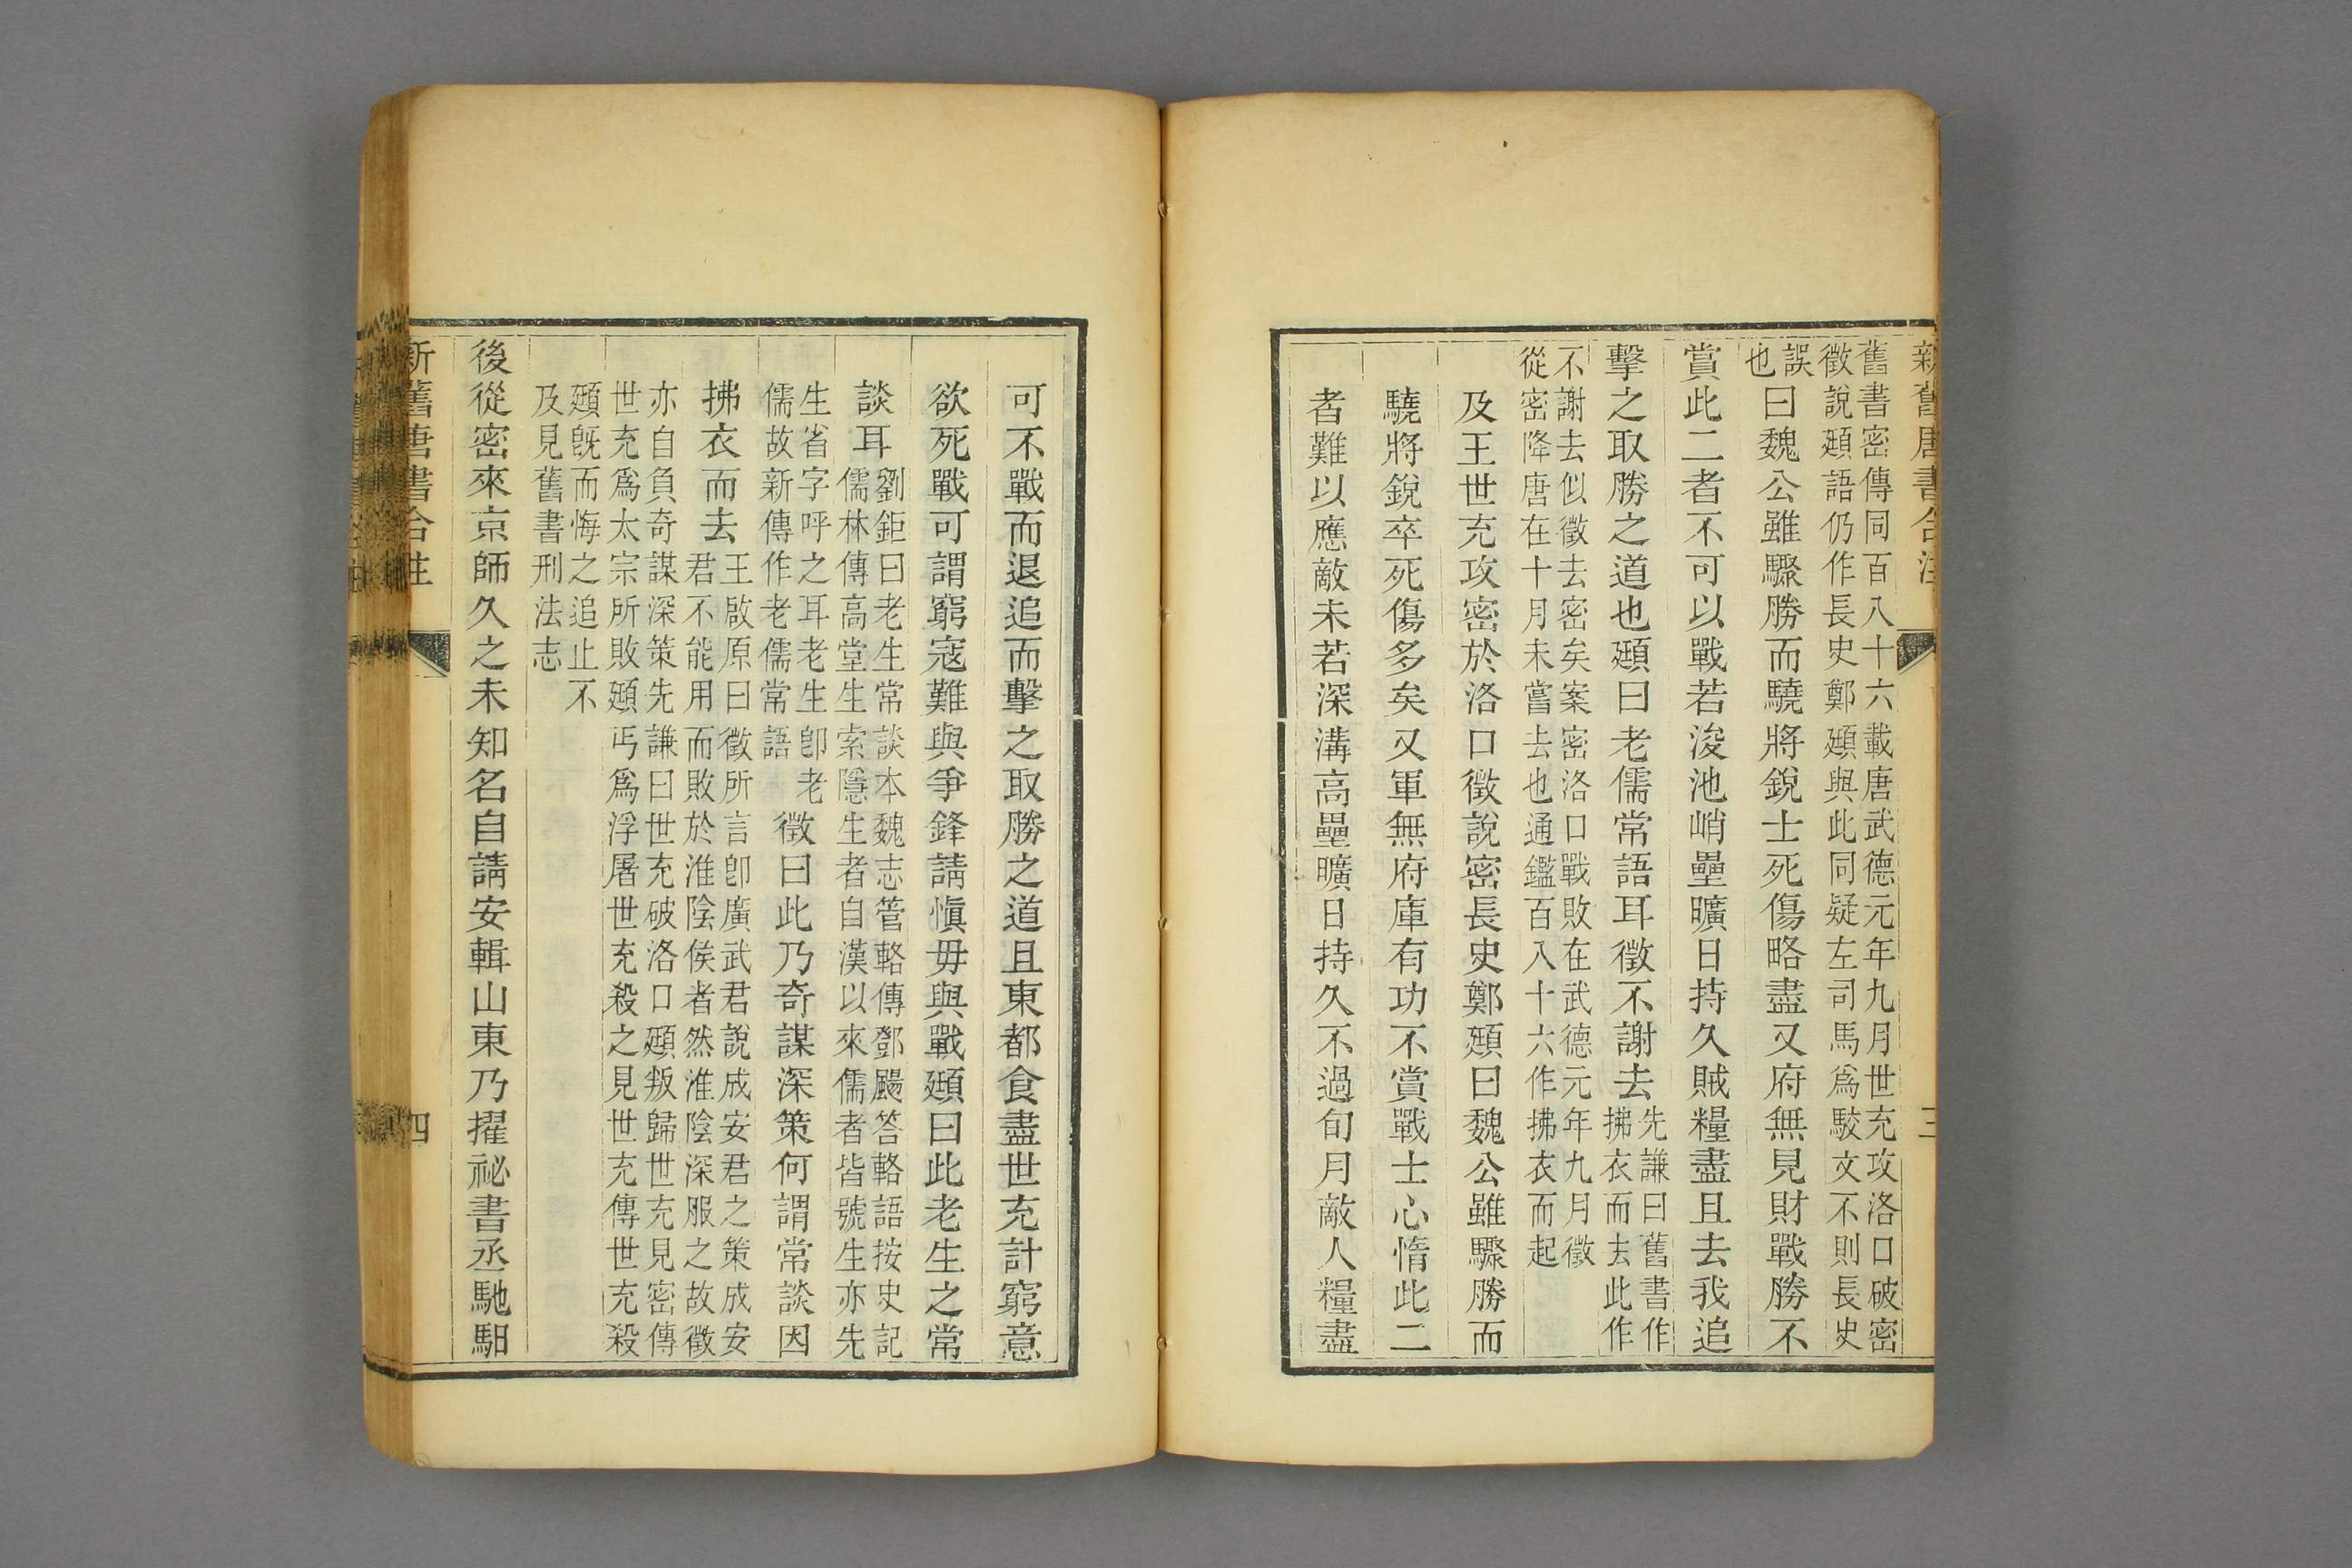 新舊唐書合注
三
舊書密傳同百八十六載唐武德元年九月世充攻洛口破密
徵說頲語仍作長史鄭頲與此同疑左司馬爲駮文不則長史
誤
也
曰魏公雖驟勝而驍將銳士死傷略盡又府無見財戰勝不
賞此二者不可以戰若浚池峭壘曠日持久賊糧盡且去我追
擊之取勝之道也頲曰老儒常語耳徵不謝去
先謙曰舊書作
拂衣而去此作
不謝去似徵去密矣案密洛口戰敗在武德元年九月徵
從密降唐在十月未嘗去也通鑑百八十六作拂衣而起
及王世充攻密於洛口徵說密長史鄭頲曰魏公雖驟勝而
驍將銳卒死傷多矣又軍無府庫有功不賞戰士心惰此二
者難以應敵未若深溝高壘曠日持久不過旬月敵人糧盡
可不戰而退追而擊之取勝之道且東都食盡世充計窮意
欲死戰可謂窮寇難與爭鋒請愼毋與戰頲曰此老生之常
談耳
劉鉅曰老生常談本魏志管輅傳鄧颺答輅語按史記
儒林傳高堂生索隱生者自漢以來儒者皆號生亦先
生省字呼之耳老生卽老
儒故新傳作老儒常語
徵曰此乃奇謀深策何謂常談因
拂衣而去
王啟原曰徵所言卽廣武君說成安君之策成安
君不能用而敗於淮陰侯者然淮陰深服之故徵
亦自負奇謀深策先謙曰世充破洛口頲叛歸世充見密傳
世充爲太宗所敗頲丐爲浮屠世充殺之見世充傳世充殺
頲旣而悔之追止不
及見舊書刑法志
後從密來京師久之未知名自請安輯山東乃擢祕書丞馳馹
新舊唐書合注
四